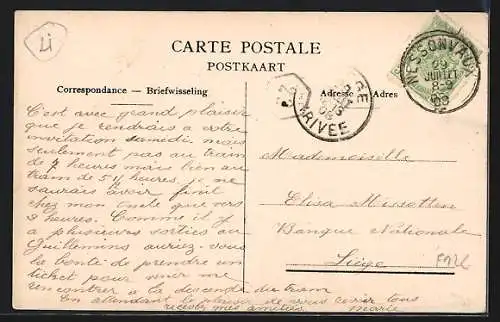 Li
CARTE POSTALE
POSTKAART
Correspondance — Briefwisseling
Adresse — Adres
NESSONVAUX
29
JUILLET
8-9
08
ARRIVÉE
C'est avec grand plaisir
que je rendrais a votre
invitation samedi mais
seulement pas au train
de 7 heures mais bien au
train de 5 h heures, je ne
saurais avoir finit
chez mon oncle que vers
3 heures. Comme il y
a plusieurs sorties au
Guillemins auriez-vous
la bonté de prendre un
ticket pour venir me
rencontrer à la descende du train
En attendant le plaisir de vous revoir tous
recevez mes amitiés. Marie
Mademoiselle
Elisa Missotten
Banque Nationale
Liège